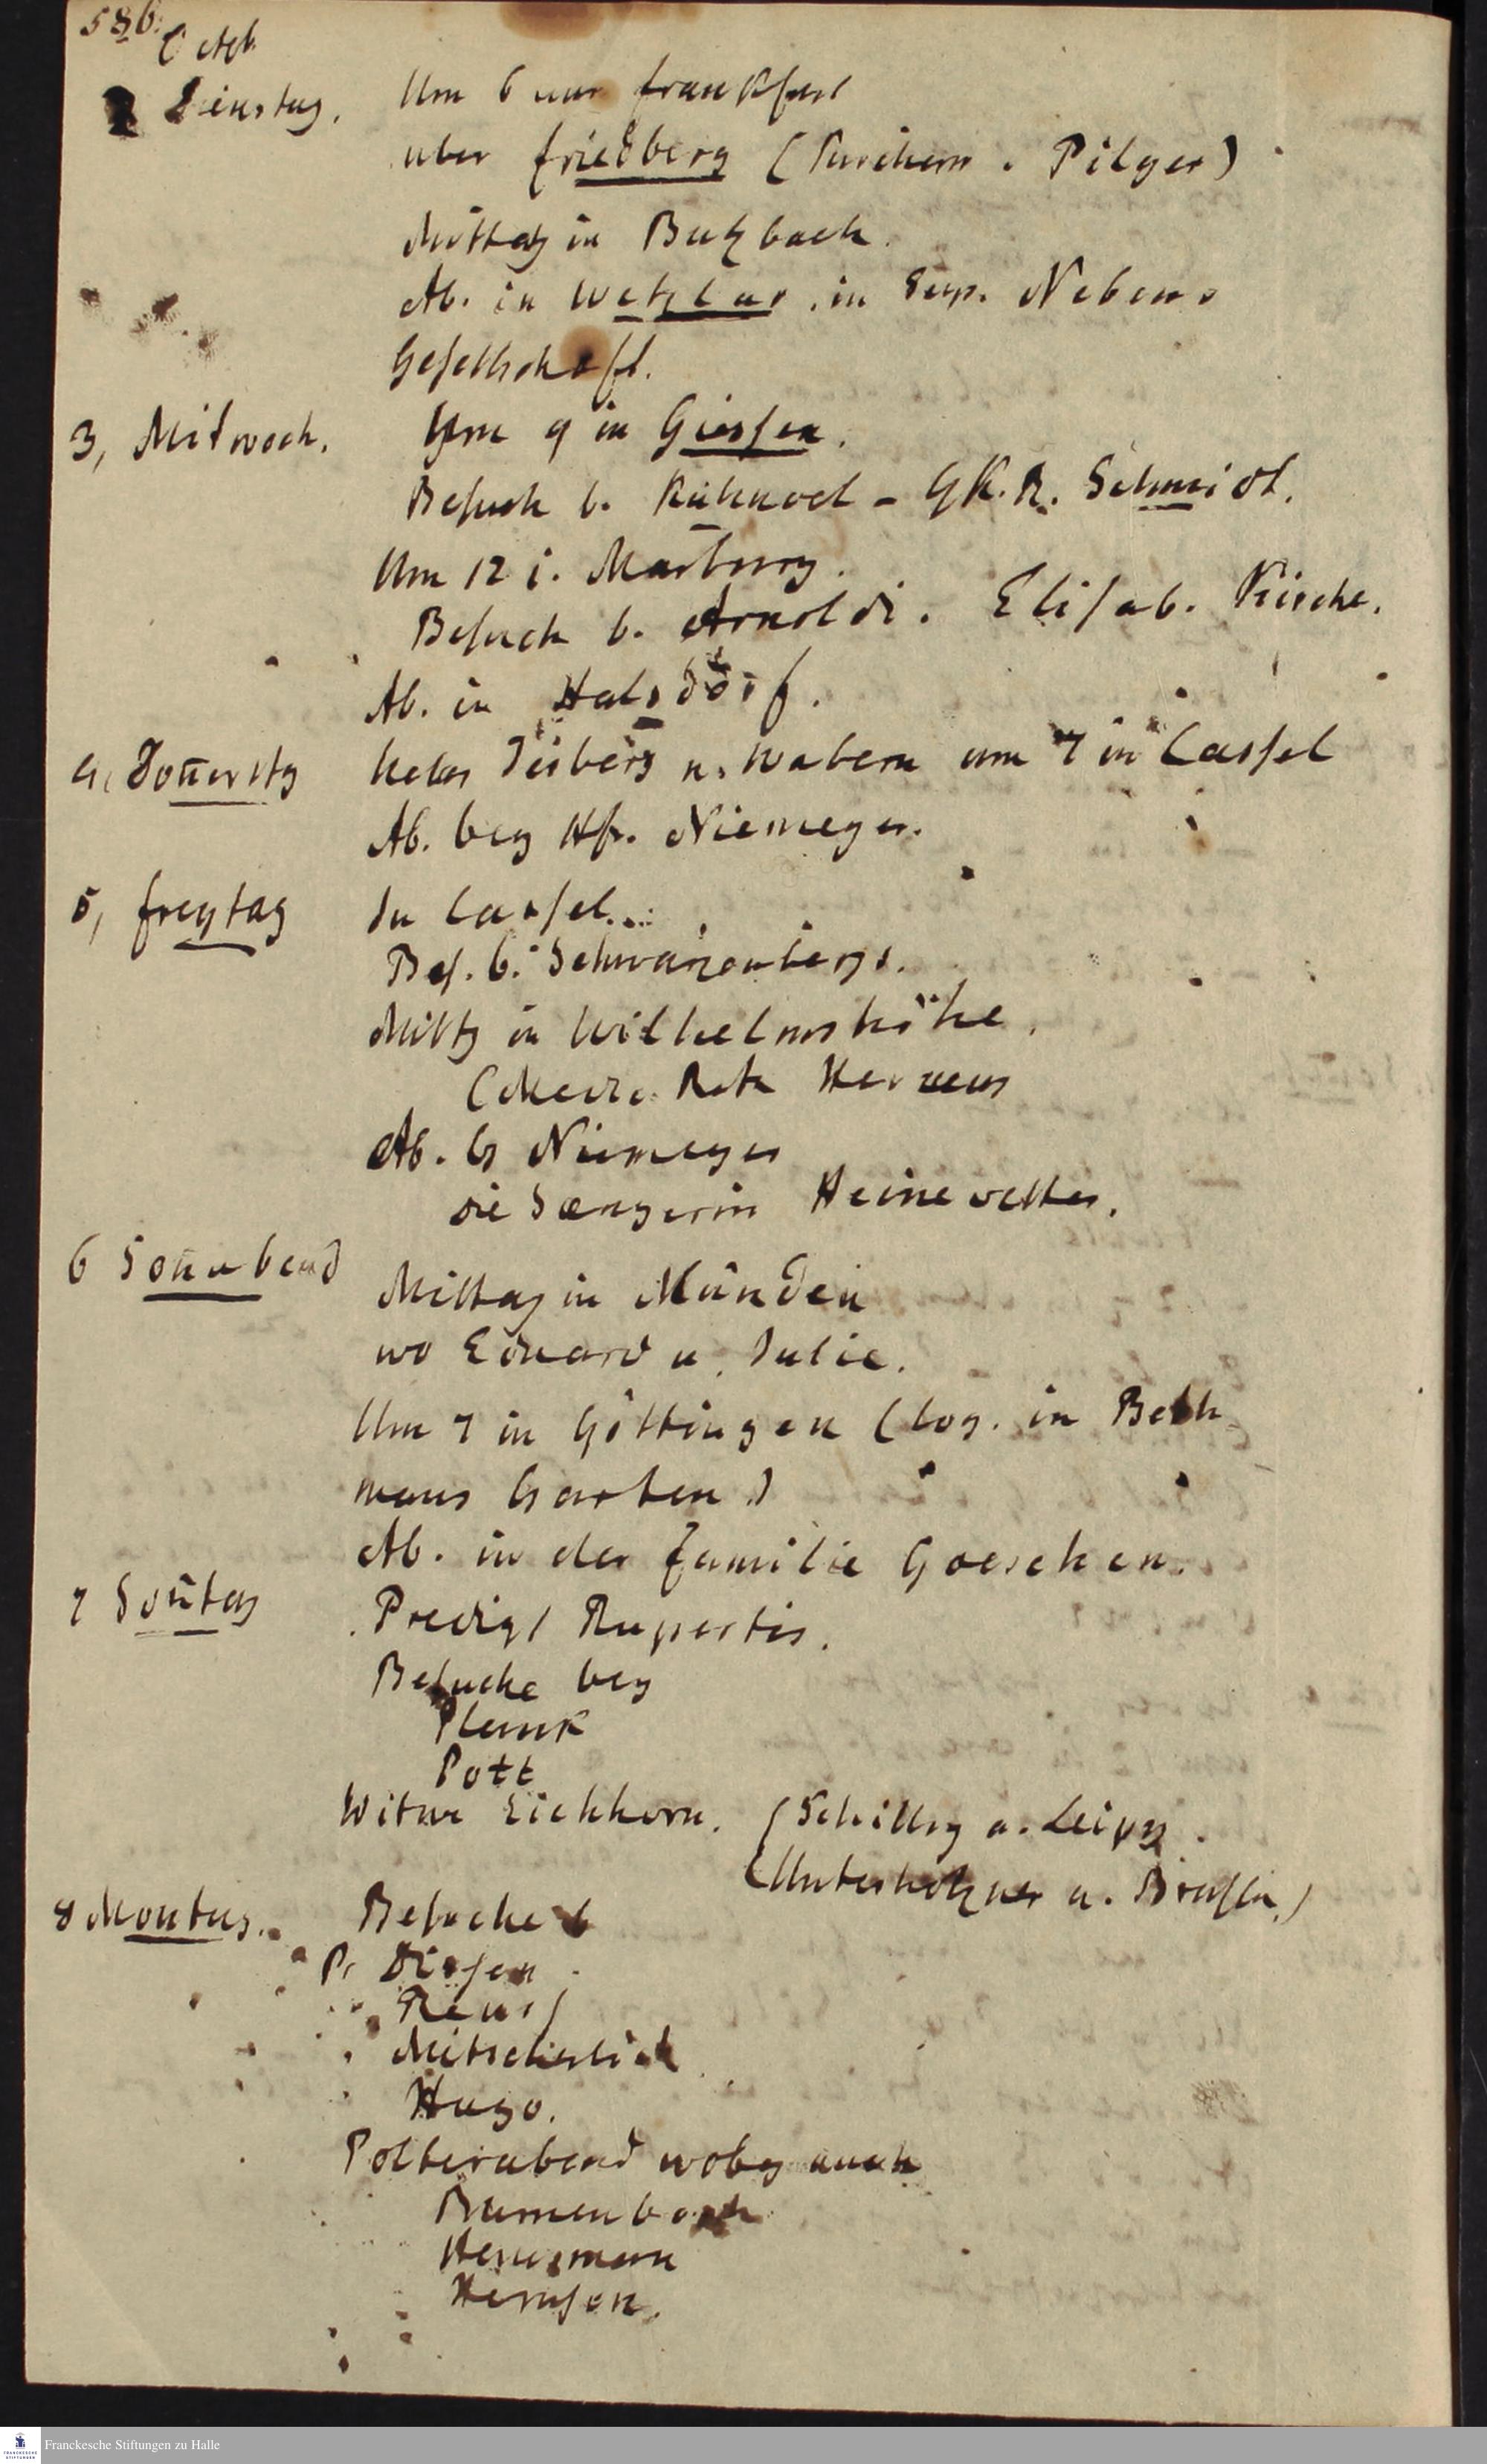 586.
Octob
2 Dienstag.
Um 6 aus Frankfurt
uber Friedberg ( Pilger)
Mittag in Butzbach.
Ab. in Wetzlar. in Sup. Nebens
Gesellschaft.
3, Mitwoch.
Um 9 in Giessen.
Besuch b. Kühnoel - G K. R. Schmidt.
Um 12 i. Marburg.
Besuch b. Arnoldi. Elisab. Kirche.
Ab. in Halsdorf.
4, Doñerstg
uber Jesberg u. Wabern um 7 in Cassel
Ab. bey Hr. Niemeyer.
5, Freytag
In Cassel.
Bes. b. Schwarzenbergs.
Mittg in Wilhelmshöhe.
(Medic. Rath
Ab. b Niemeyer
die Sängerin Heinevetter.
6 Soñabend
Mittag in Münden
wo Eduard u. Julie.
Um 7 in Göttingen (log. in Beth-
mans Garten.)
Ab. in der Familie Goeschen.
7 Soñtag
Predigt Rupertis.
Besuche bey
Plank
Pott
Witwe Eichhorn. (Schillig a. Leipzg.
(Unterholzner a. Breslu.)
8 Montag.
Besuche b
Pr Dissen
Reuss
Mitscherlich
Hugo.
Polterabend wobey auch
Blumenbach
Heusmann
Hemsen.
Franckesche Stiftungen zu Halle